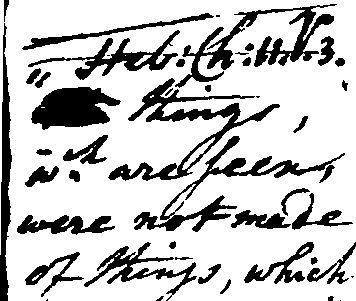 " Heb: Ch: 11. v. 3.
things,
wch. are seen,
were not made
of things, which